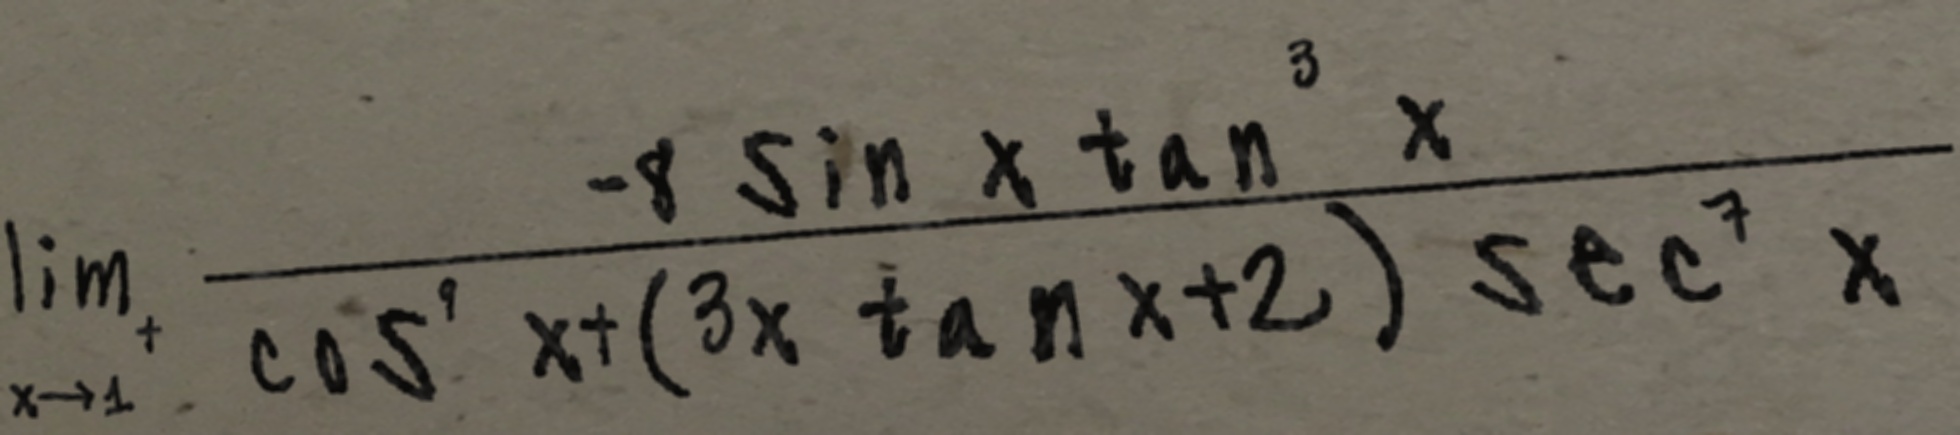 lim x→1⁺ (-8 sin x tan³ x) / (cos⁹ x+(3x tan x+2) sec⁷ x)